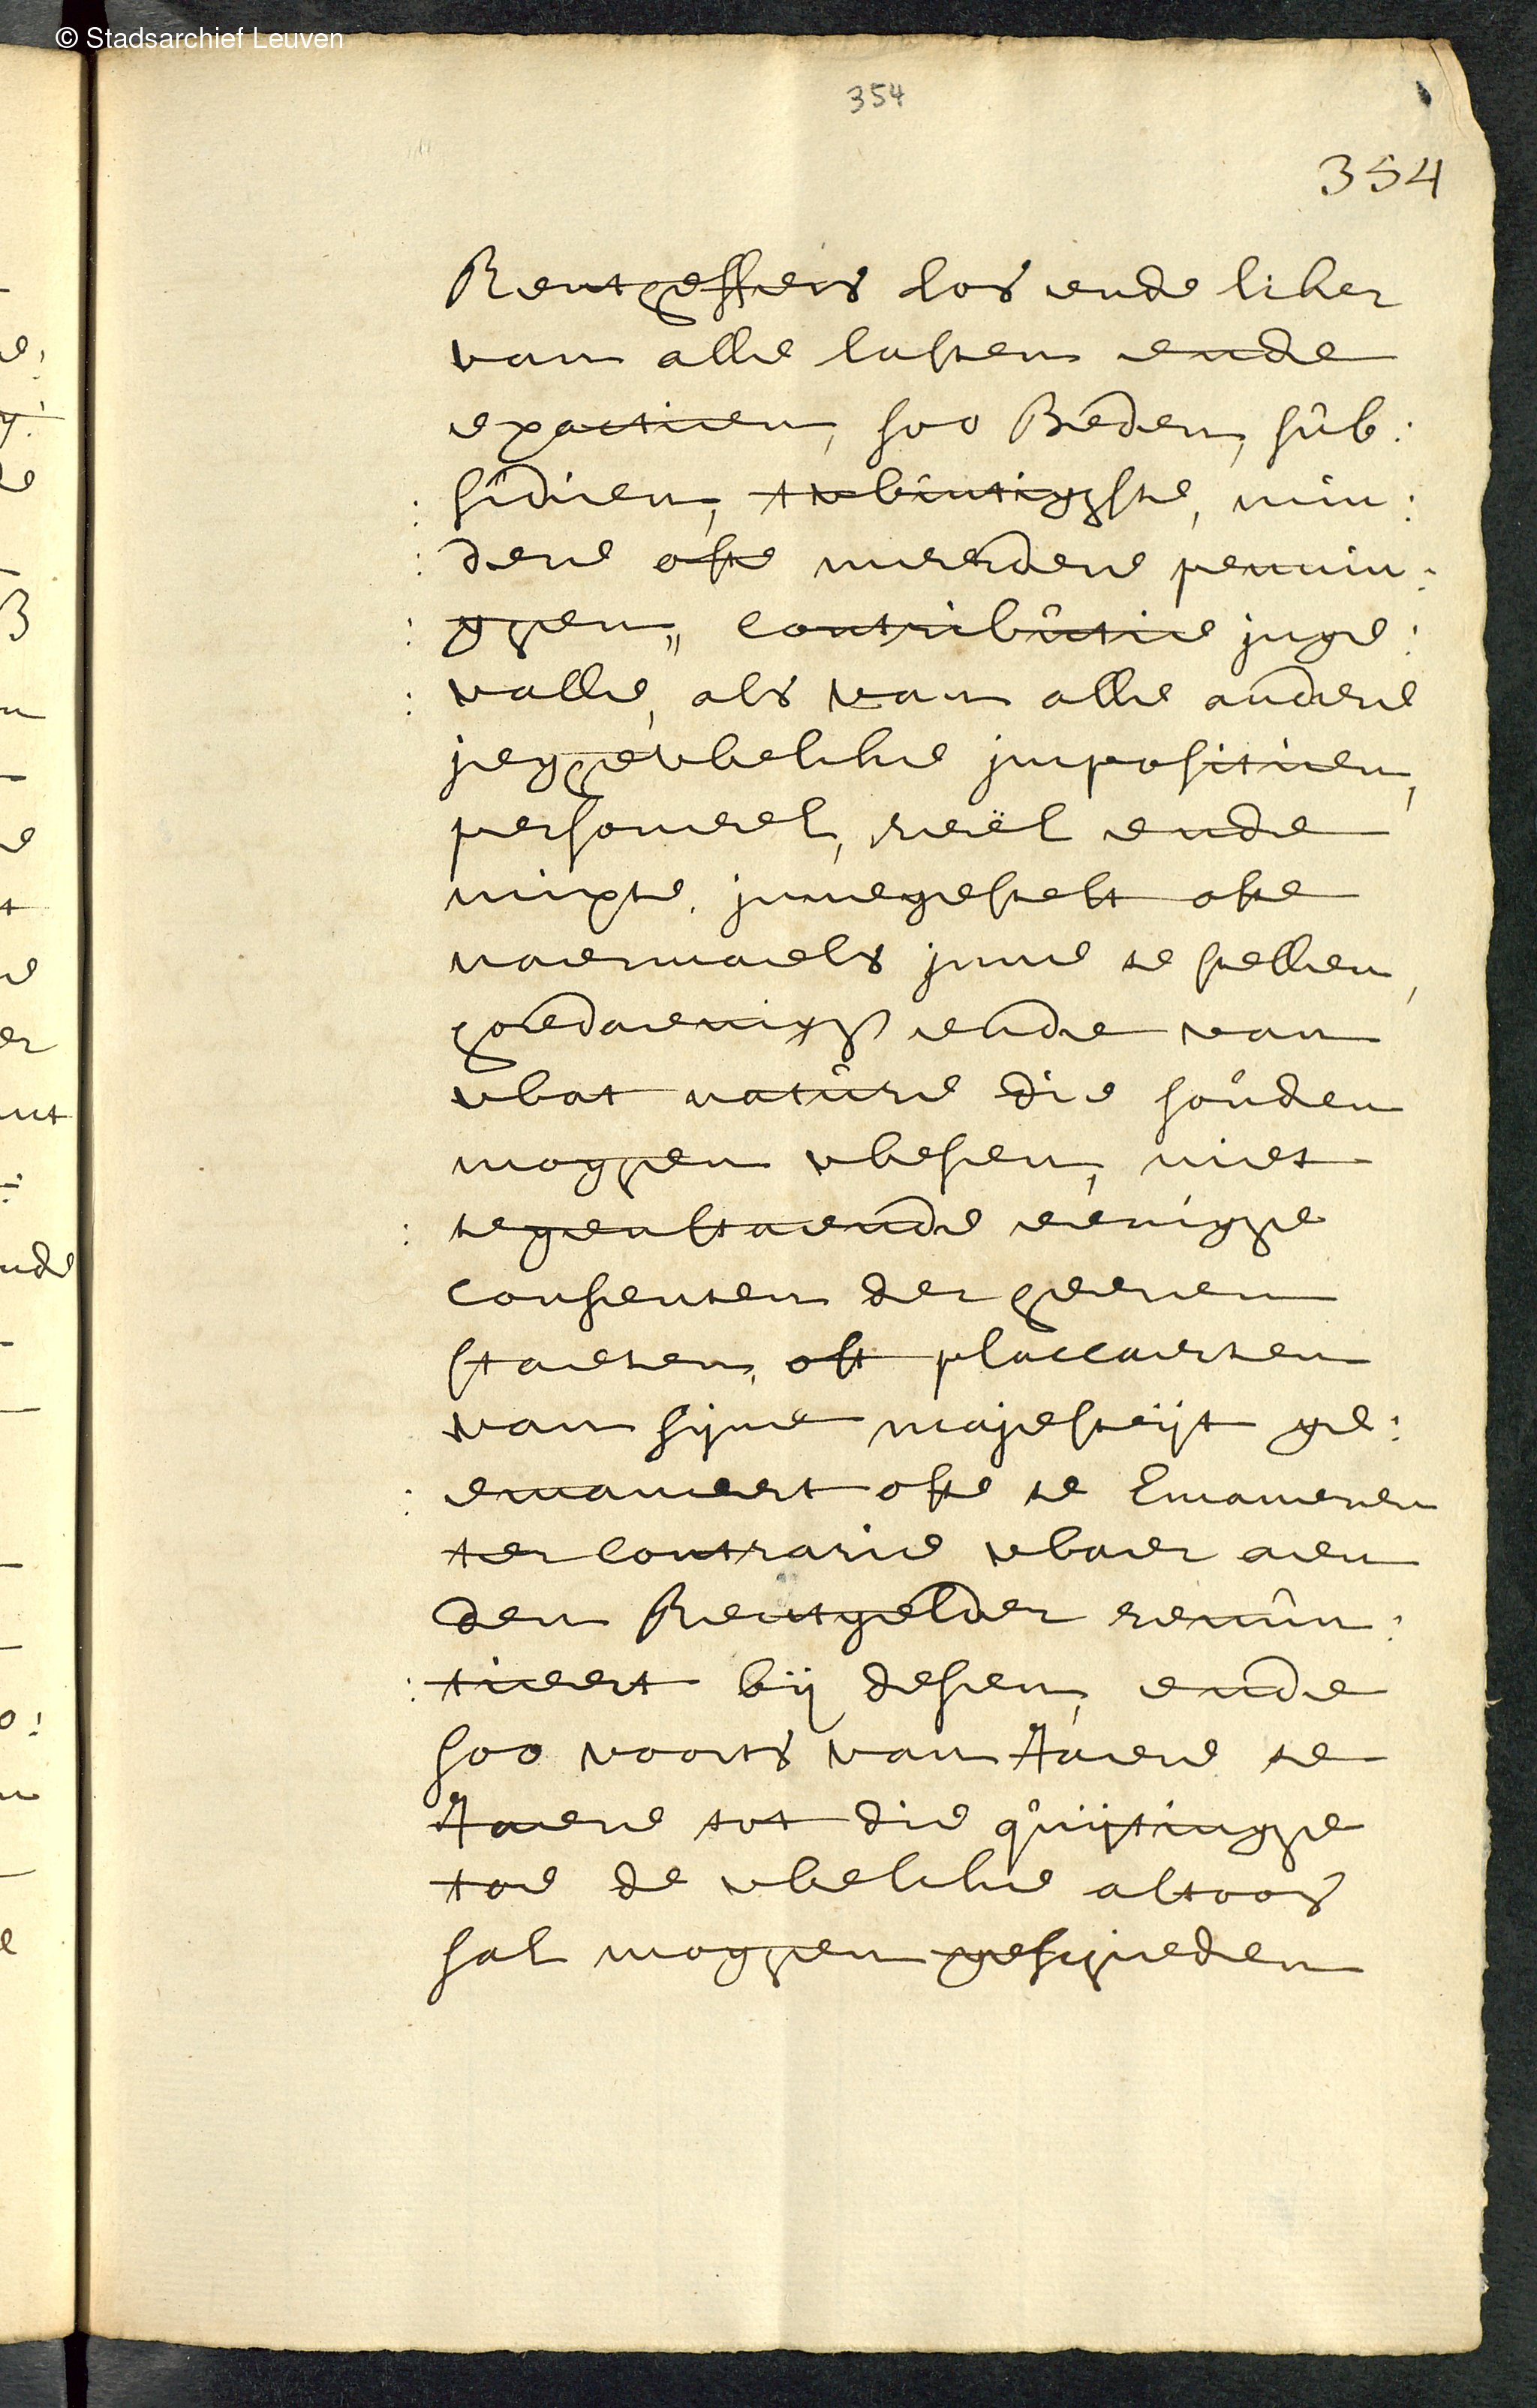 © Stadsarchief Leuven
354
354
Rentheffers los ende liber
van alle lasten ende
exactien, soo Beden, sub:
: sidien, twintighste, min:
: dere ofte meerdere pennin:
: ghen,, contributie inge:
: valle, als van alle andere
jeghewelcke impositien,
personeel, reël ende
mixte, innegestelt ofte
naermaels inne te stellen,
hoedaenigh ende van
wat nature die souden
moghen wesen, niet
: tegenstaende eenighe
consenten der heeren
staeten, oft placcaerten
van sijne majesteijt ge:
: emaneert ofte te Emaneren
ter contrarie waer aen
den Rentgelder renun:
: tieert bij desen, ende
soo voorts van Jaere te
Jaere tot die quijtinghe
toe de welcke altoos
sal moghen geschieden